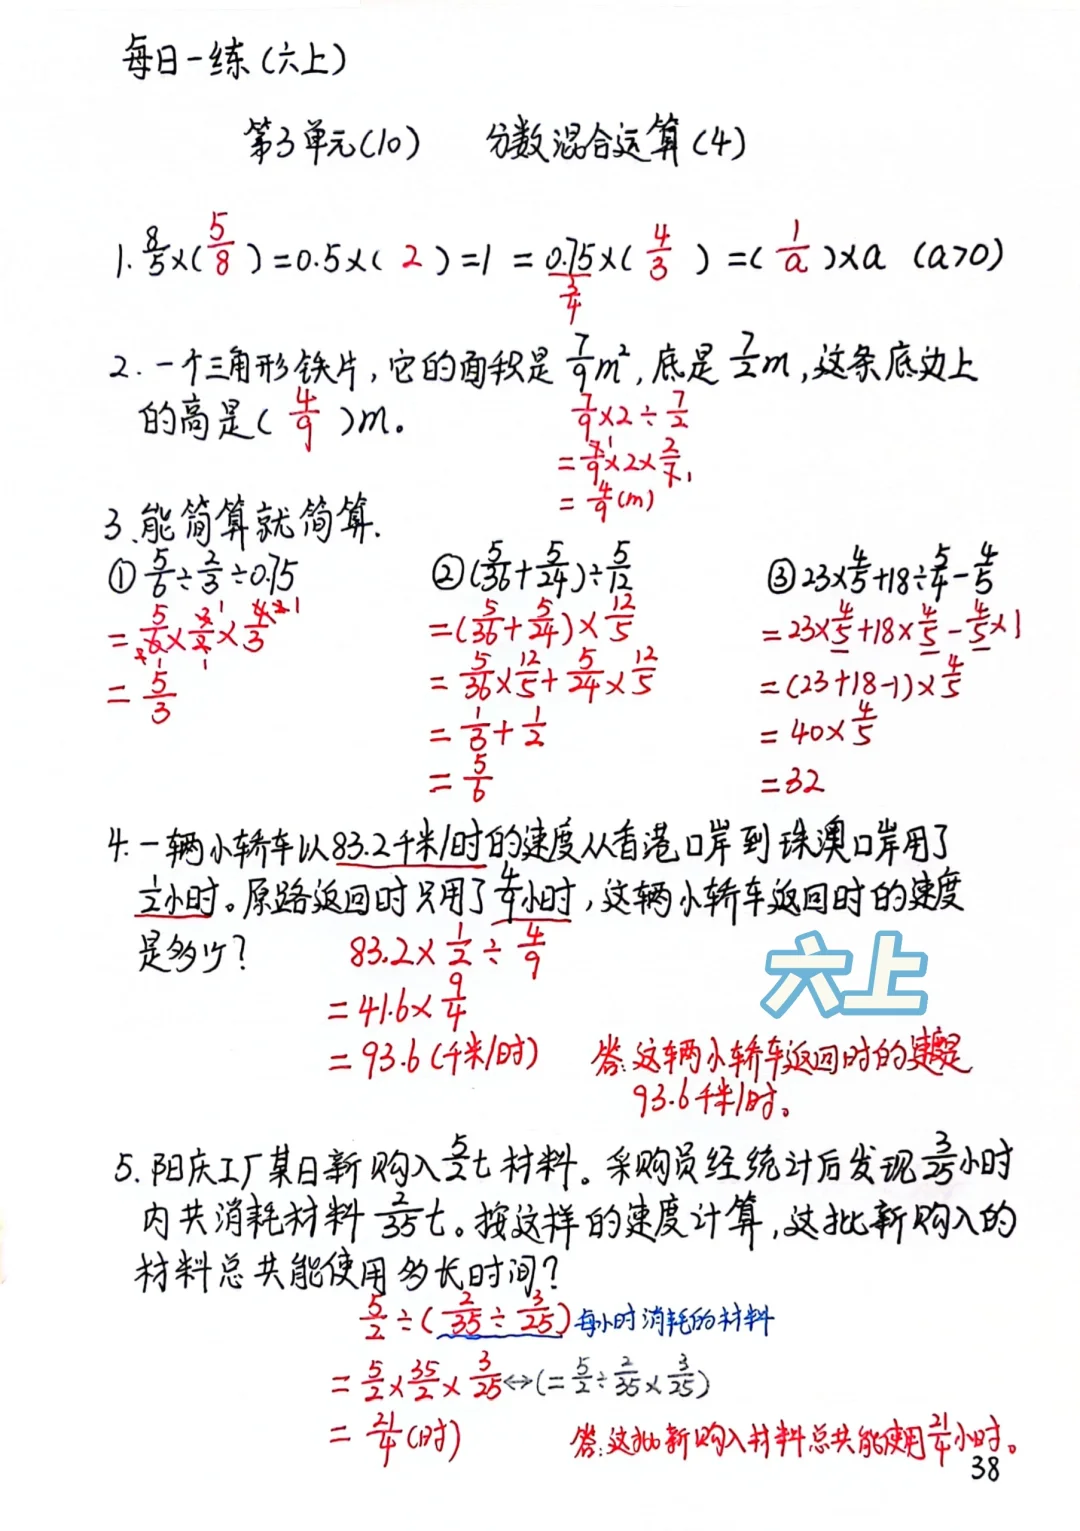 每日一练(六上)
第3单元(10) 分数混合运算(4)
1. 8/5×( 5/8 )=0.5×( 2 )=1=0.75×( 4/3 )=( 1/a )×a (a>0)
3/4
2. 一个三角形铁片,它的面积是7/9m²,底是7/2m,这条底边上
的高是( 4/9 )m。
7/9×2÷7/2
=7/9×2×2/7
=4/9(m)
3.能简算就简算.
①5/6÷2/3÷0.75 ②(5/36+5/24)÷5/12 ③23×4/5+18÷5/4-4/5
=5/6×3/2×4/3 =(5/36+5/24)×12/5 =23×4/5+18×4/5-4/5×1
=5/3 =5/36×12/5+5/24×12/5 =(23+18-1)×4/5
=1/3+1/2 =40×4/5
=5/6 =32
4.一辆小轿车以83.2千米/时的速度从香港口岸到珠澳口岸用了
1/2小时。原路返回时只用了4/9小时,这辆小轿车返回时的速度
是多少?
83.2×1/2÷4/9
=41.6×9/4
=93.6(千米/时) 答:这辆小轿车返回时的速度是
93.6千米/时。
六上
5.阳庆工厂某日新购入5/2t材料。采购员经统计后发现3/25小时
内共消耗材料2/35t。按这样的速度计算,这批新购入的
材料总共能使用多长时间?
5/2÷(2/35÷3/25)每小时消耗的材料
=5/2×35/2×3/25↔(=5/2÷2/35×3/25)
=21/4(时) 答:这批新购入材料总共能使用21/4小时。
38